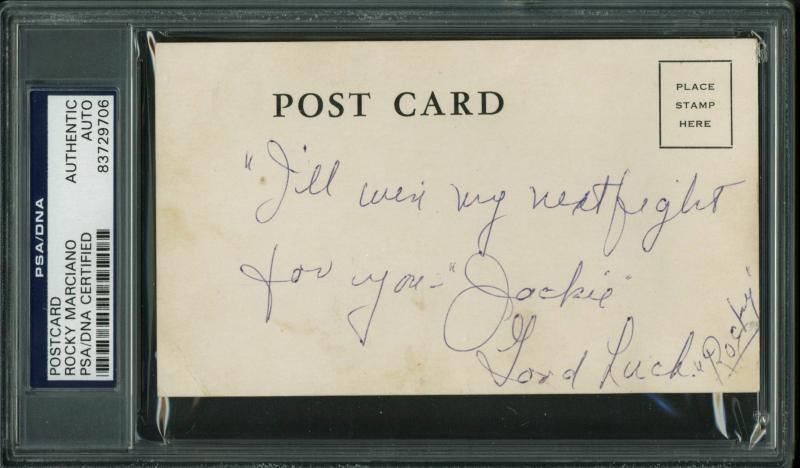 PSA/DNA
POSTCARD
ROCKY MARCIANO
PSA/DNA CERTIFIED
AUTHENTIC
AUTO
83729706
POST CARD
PLACE
STAMP
HERE
"I'll win my next fight
for you - "Jackie"
Good Luck. "Rocky"